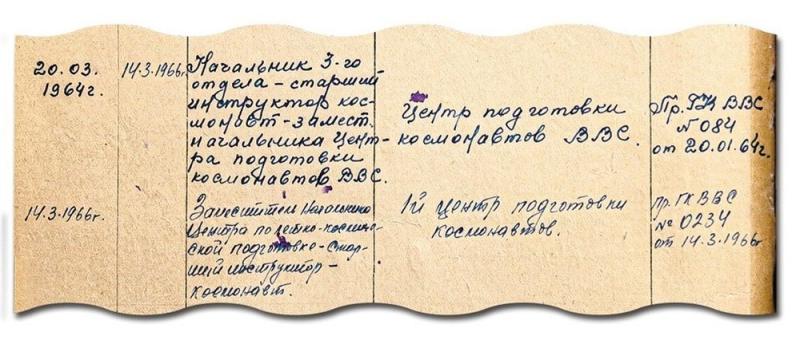 20.03.
1964г.
14.3.1966г.
Начальник 3-го
отдела – старший
инструктор кос-
монавт – замест.
начальника Цент-
ра подготовки
космонавтов ВВС.
Центр подготовки
космонавтов ВВС.
Пр. ГК ВВС
№ 084
от 20.01.64г.
14.3.1966г.
Заместител Начальника
Центра по летно-косми-
ской подготовке – Стар-
ший инструктор –
космонавт.
1й Центр подготовки
космонавтов.
пр. ГК ВВС
№ 0234
от 14.3.1966г